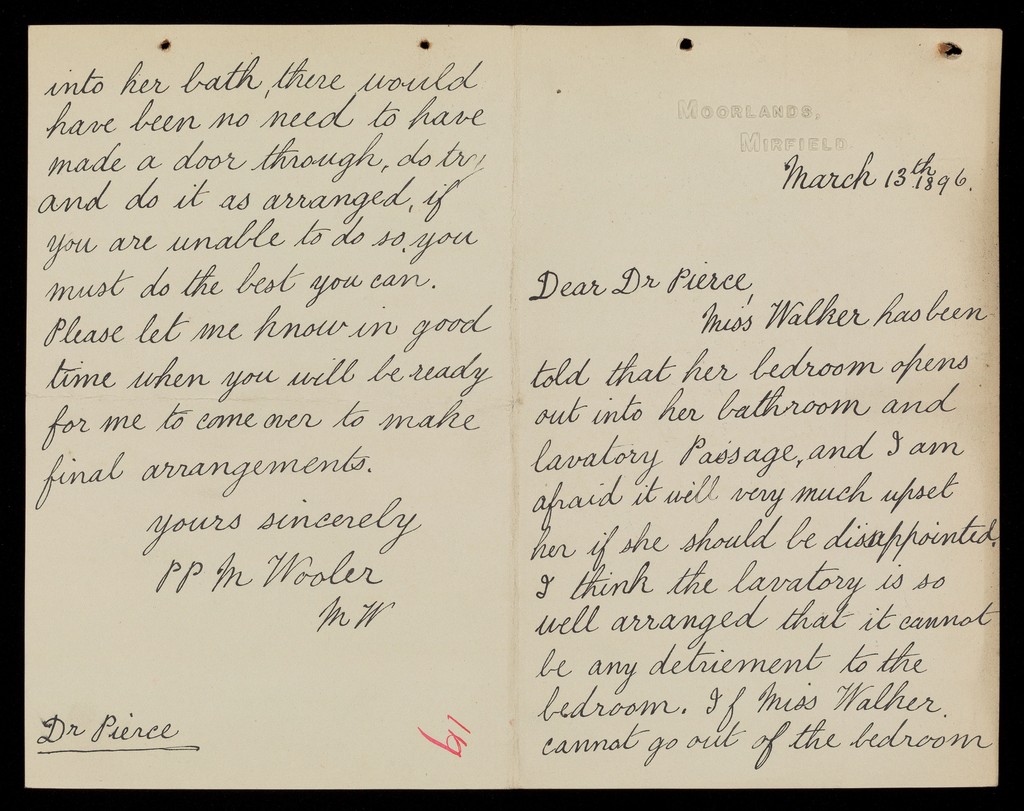 MOORLANDS,
MIRFIELD.
March 13th 1896.
Dear Dr Pierce,
Miss Walker has been
told that her bedroom opens
out into her bathroom and
lavatory Passage, and I am
afraid it will very much upset
her if she should be disappointed.
I think the lavatory is so
well arranged that it cannot
be any detriement to the
bedroom. If Miss Walker
cannot go out of the bedroom
into her bath, there would
have been no need to have
made a door through, do try
and do it as arranged, if
you are unable to do so, you
must do the best you can.
Please let me know in good
time when you will be ready
for me to come over to make
final arrangements.
yours sincerely
PP M Wooler
M W
Dr Pierce